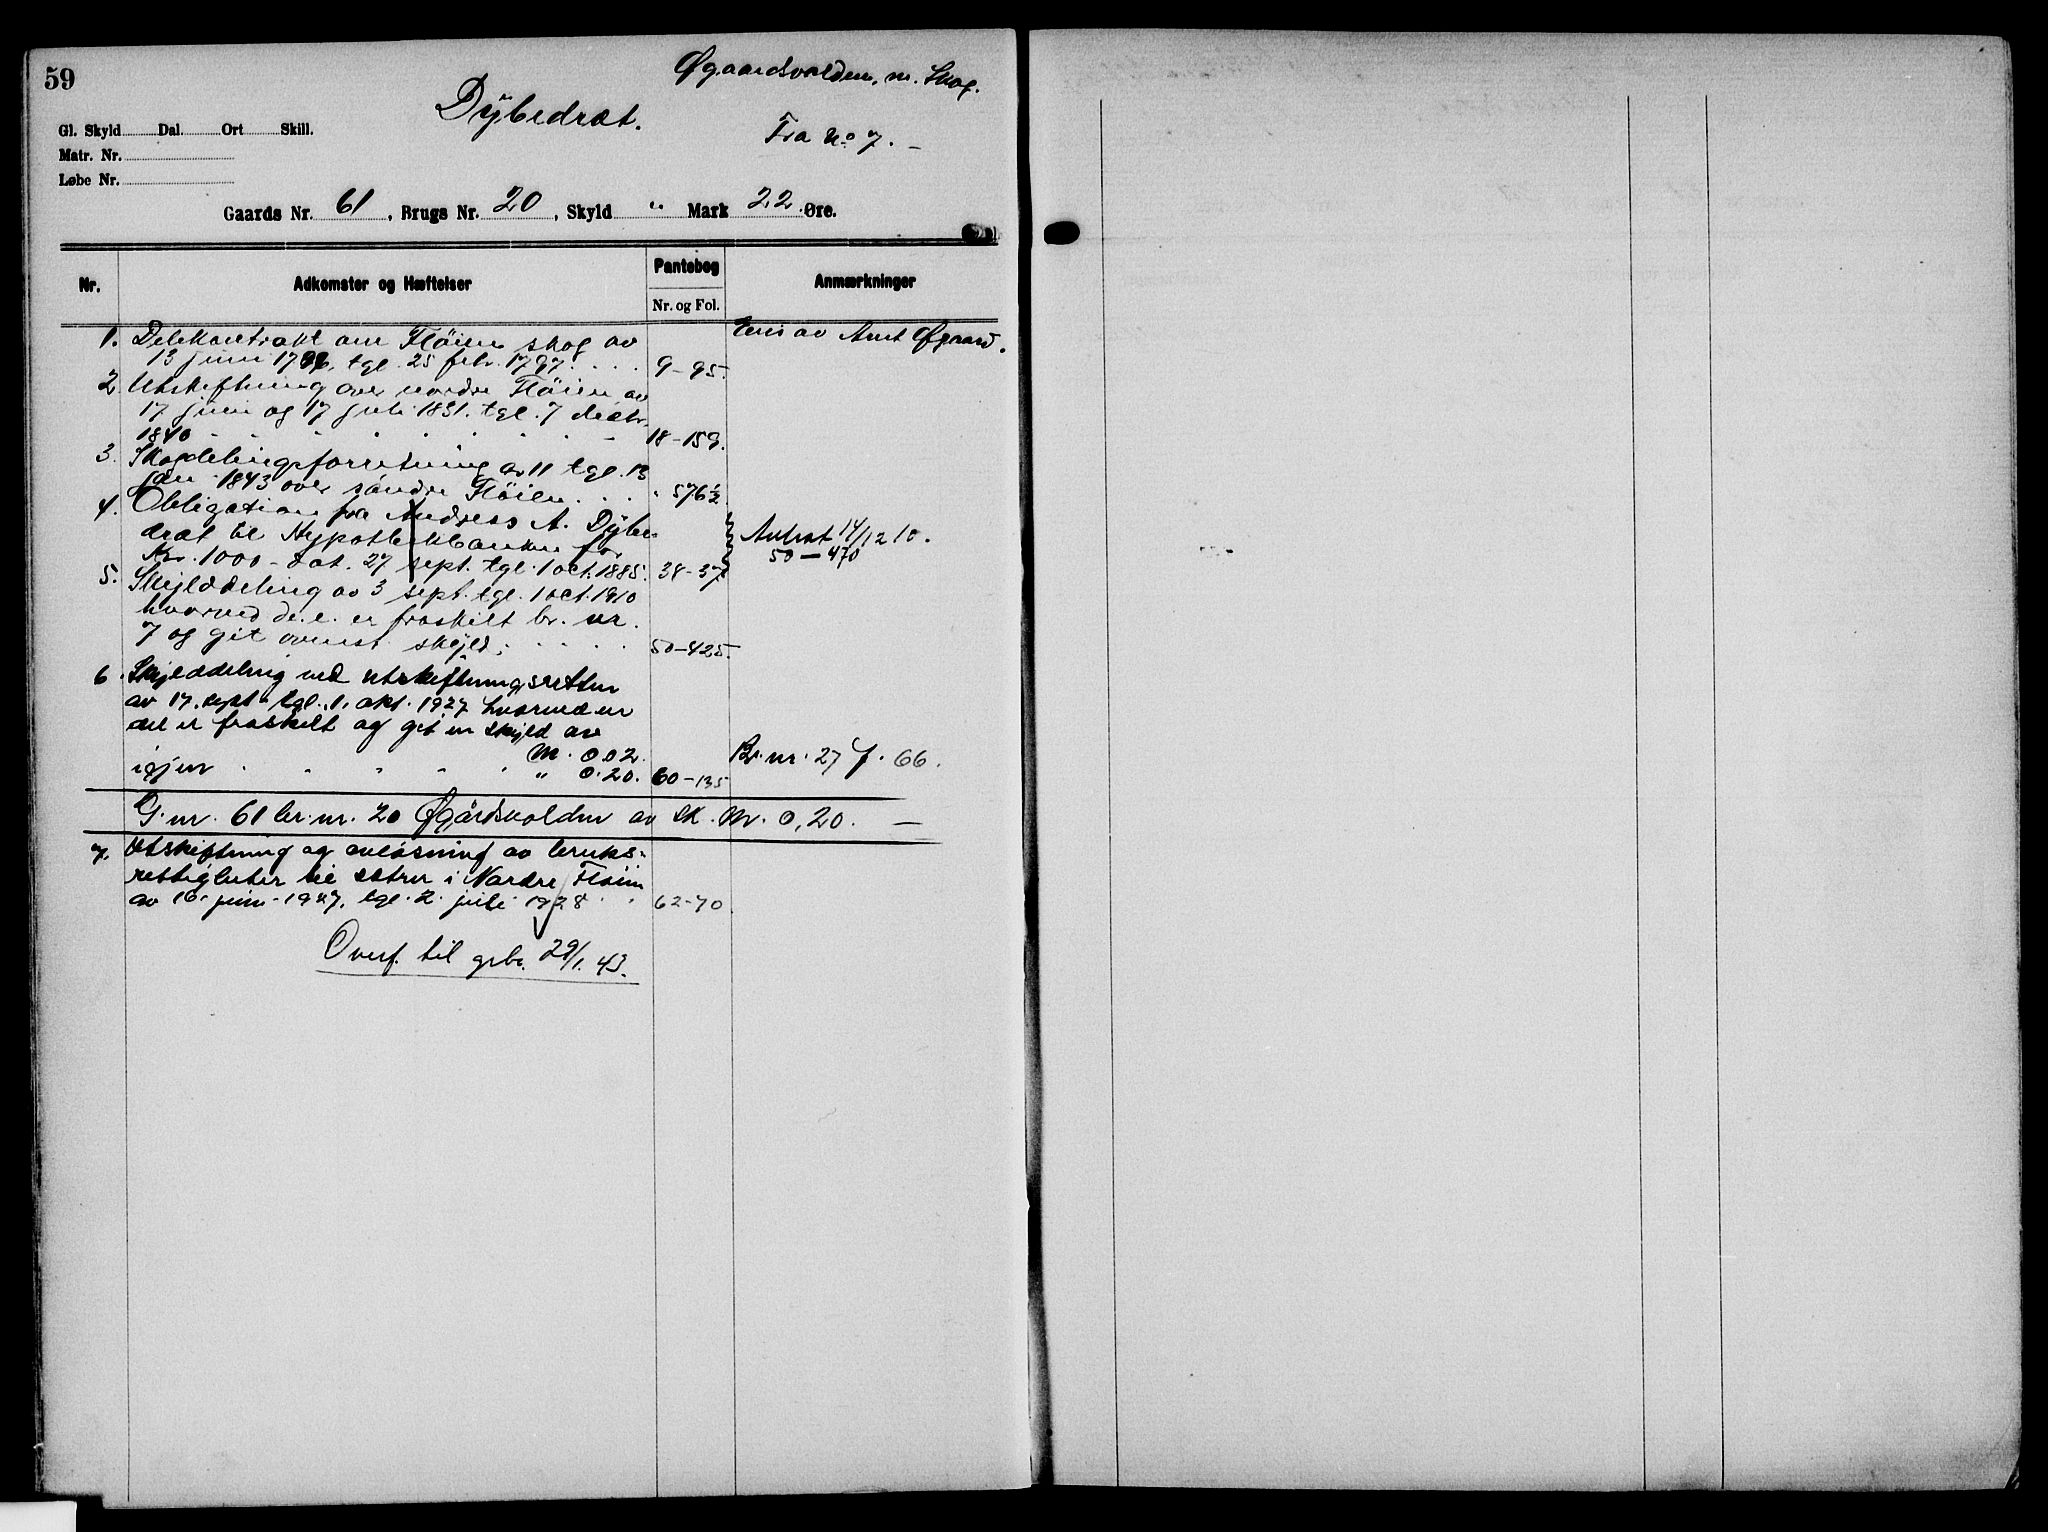 59
Øgaardsvolden, m. Skog.
Dybedræt.
Fra No 7. –
Gl. Skyld Dal. Ort Skill.
Matr. Nr.
Løbe Nr.
Gaards Nr. 61, Brugs Nr. 20, Skyld " Mark 22 Øre.
Nr. Adkomster og Hæftelser Pantebog Anmærkninger
Nr. og Fol.
1. Delekontrakt om Flöien skog av Eies av Amt Øgaard.
13 juni 1796, tgl. 25 febr. 1797. . . . 9-95.
2. Utskiftning over nordre Flöien av
17 juni og 17 juli 1831. tgl. 7 decbr.
1840 18-159.
3. Skogdelingsforretning av 11 tgl. 13
jan. 1843 over söndre Flöien . . . " 576½
4. Obligation fra Andreas A. Dybe-
dræt til Hypothekbanken for Avlyst 14/12 10.
Kr. 1000 - dat. 27 sept. tgl. 1 oct. 1885. 38-37 50-470
5. Skylddeling av 3 sept. tgl. 1 oct. 1910
hvorved d. e. er fraskilt br. nr.
7 og git ovenst. skyld. . . . . 50-425.
6. Skylddeling ved utskiftningsretten
av 17. sept. tgl. 1. okt. 1927 hvorved en
del er fraskilt og git en skyld av
M. 0.02. Br. nr. 27 f. 66.
igjen " 0.20. 60-135
G. nr. 61 br. nr. 20 Øgårdsvolden av sk. M. 0,20. –
7. Utskiftning og avløsning av bruks-
rettigheter til sætrer i Nordre Flöien
av 16. juni 1927, tgl. 2. juli 1928 . . 62-70
Overf. til grb. 29/1. 43.